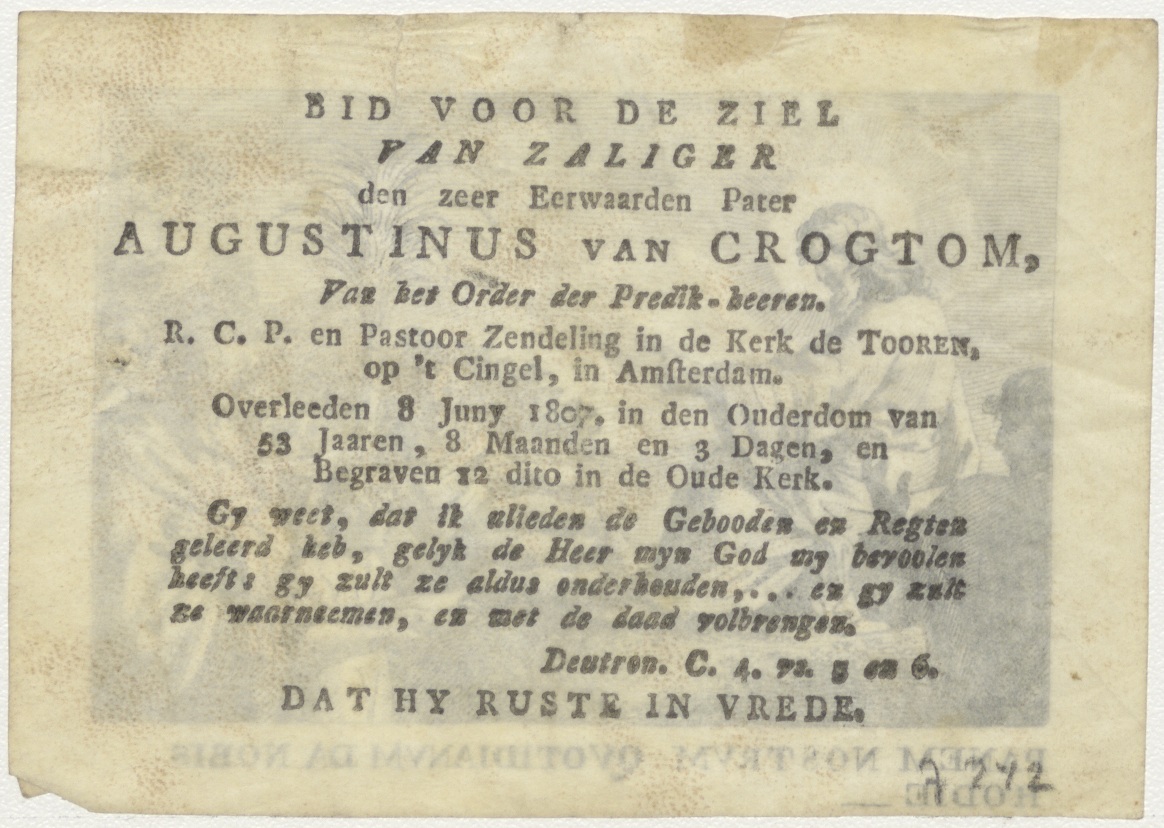 BID VOOR DE ZIEL
VAN ZALIGER
den zeer Eerwaarden Pater
AUGUSTINUS VAN CROGTOM,
Van het Order der Predik-heeren.
R. C. P. en Pastoor Zendeling in de Kerk de TOOREN,
op 't Cingel, in Amſterdam.
Overleeden 8 Juny 1807. in den Ouderdom van
53 Jaaren, 8 Maanden en 3 Dagen, en
Begraven 12 dito in de Oude Kerk.
Gy weet, dat ik ulieden de Gebooden en Regten
geleerd heb, gelyk de Heer myn God my bevoolen
heeft: gy zult ze aldus onderhouden,... en gy zult
ze waarneemen, en met de daad volbrengen.
Deutron. C. 4. vs. 5 en 6.
DAT HY RUSTE IN VREDE.
PANEM NOSTRVM QVOTIDIANVM DA NOBIS
HODIE
742